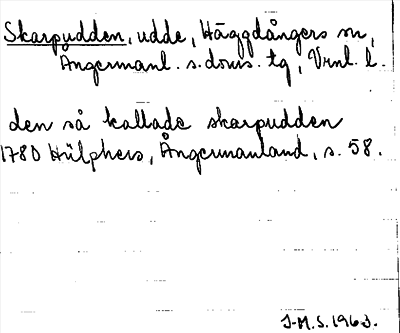 Skarpudden, udde, Häggdångers sn,
Ångermanl. s. doms. tg, Vrnl. l.
den så kallade skarpudden
1780 Hülphers, Ångermanland, s. 58.
J.M.S. 1963.